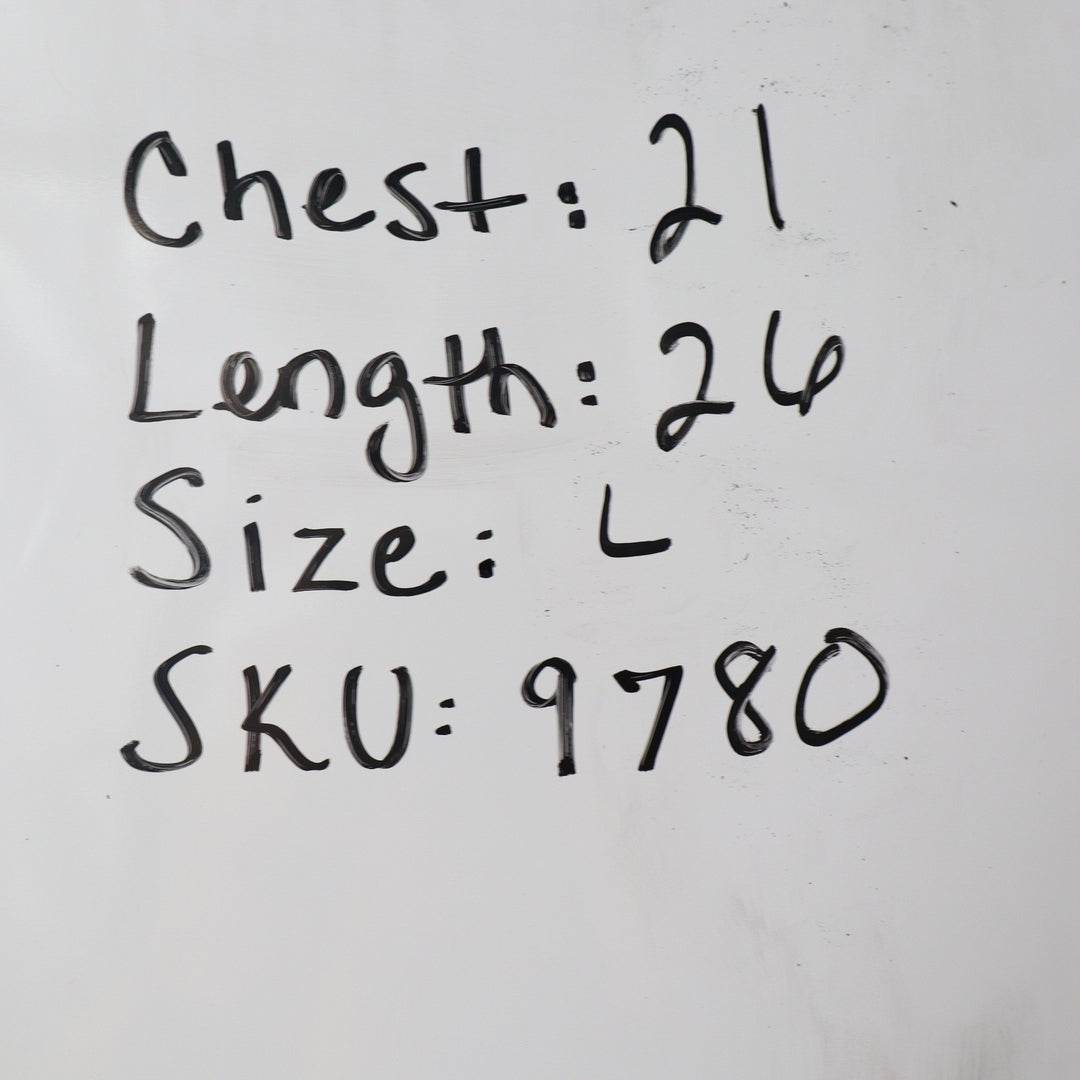 Chest: 21
Length: 26
Size: L
SKU: 9780